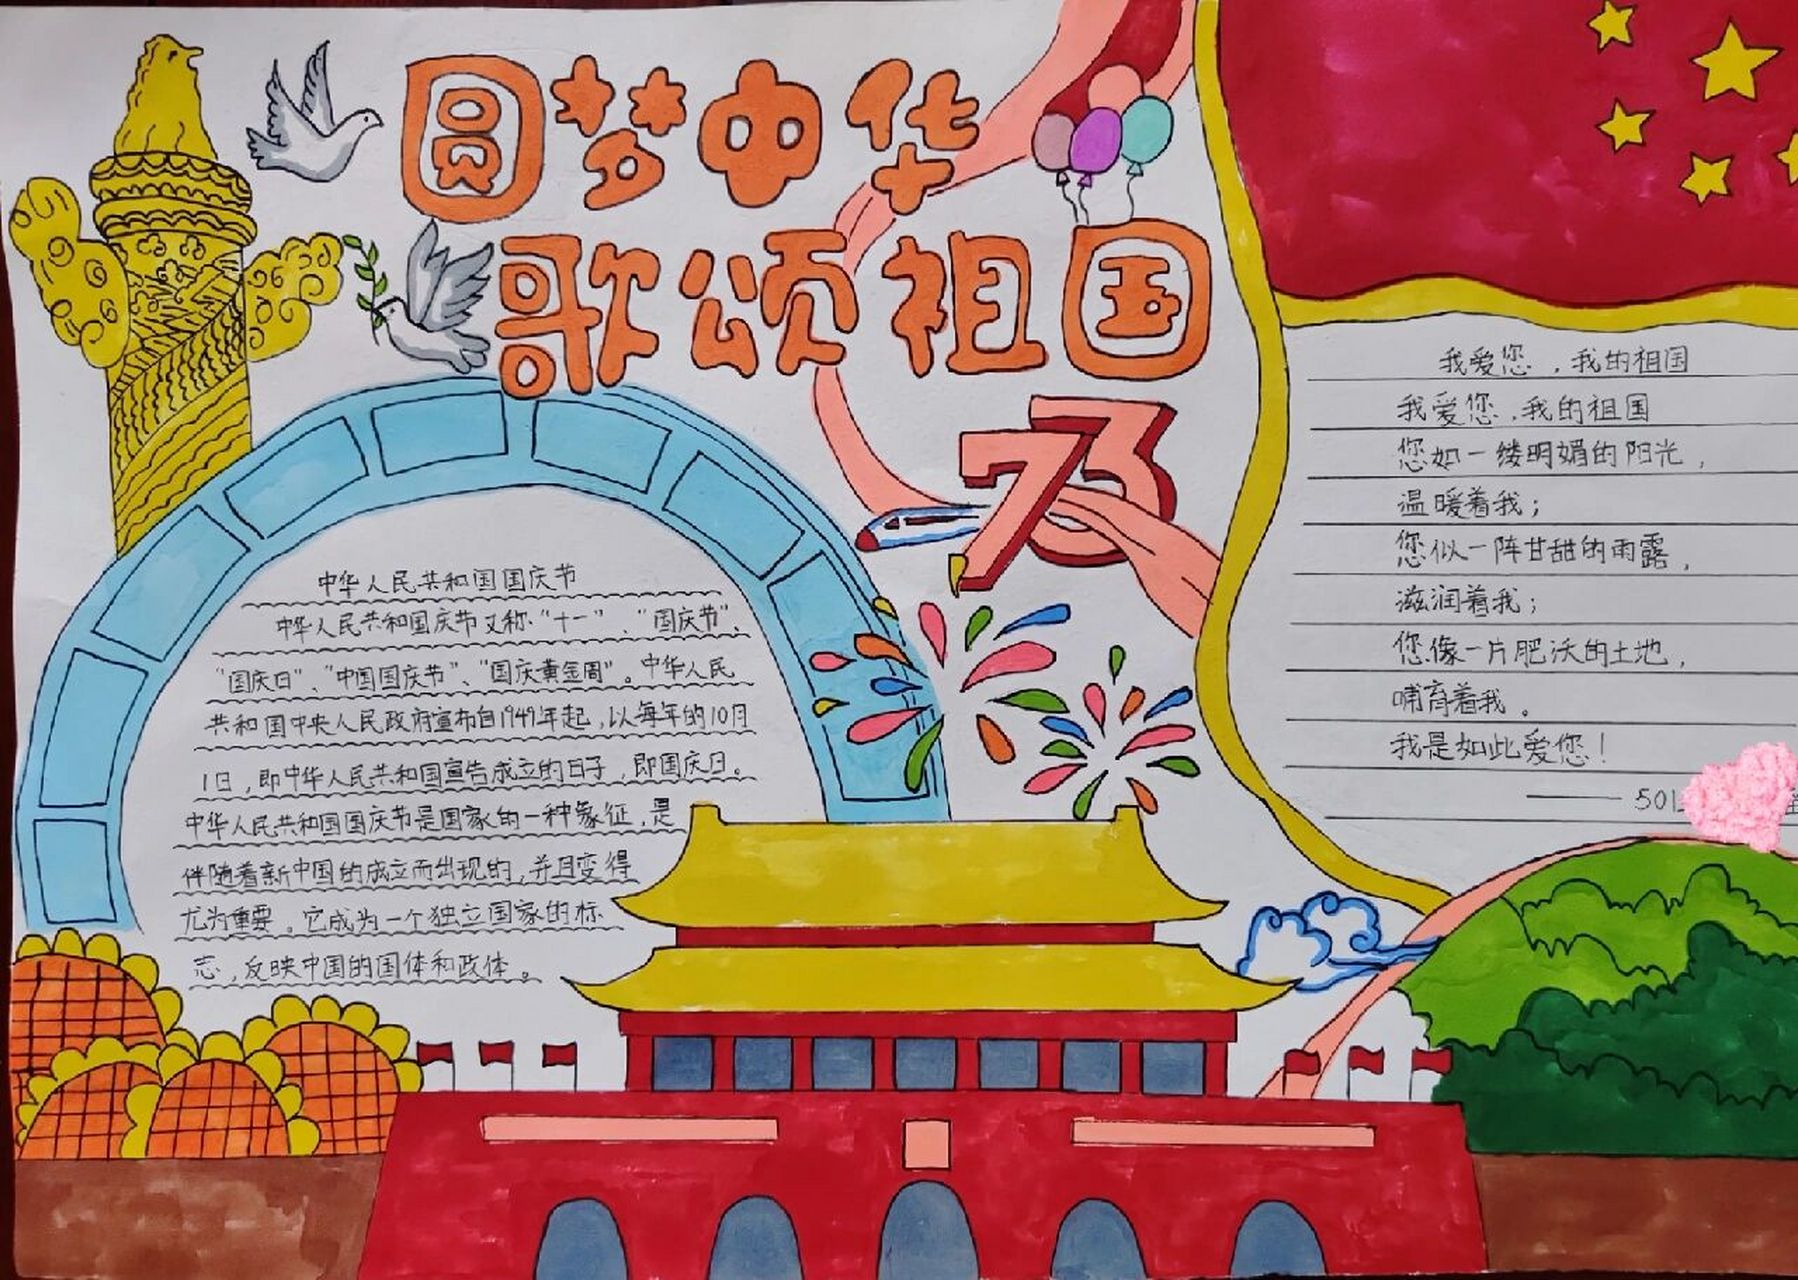 圆梦中华
歌颂祖国
73
中华人民共和国国庆节
中华人民共和国国庆节又称“十一”、“国庆节”、
“国庆日”、“中国国庆节”、“国庆黄金周”。中华人民
共和国中央人民政府宣布自1949年起,以每年的10月
1日,即中华人民共和国宣告成立的日子,即国庆日。
中华人民共和国国庆节是国家的一种象征,是
伴随着新中国的成立而出现的,并且变得
尤为重要。它成为一个独立国家的标
志,反映中国的国体和政体。
我爱您,我的祖国
我爱您,我的祖国
您如一缕明媚的阳光,
温暖着我;
您似一阵甘甜的雨露,
滋润着我;
您像一片肥沃的土地,
哺育着我。
我是如此爱您!
——501